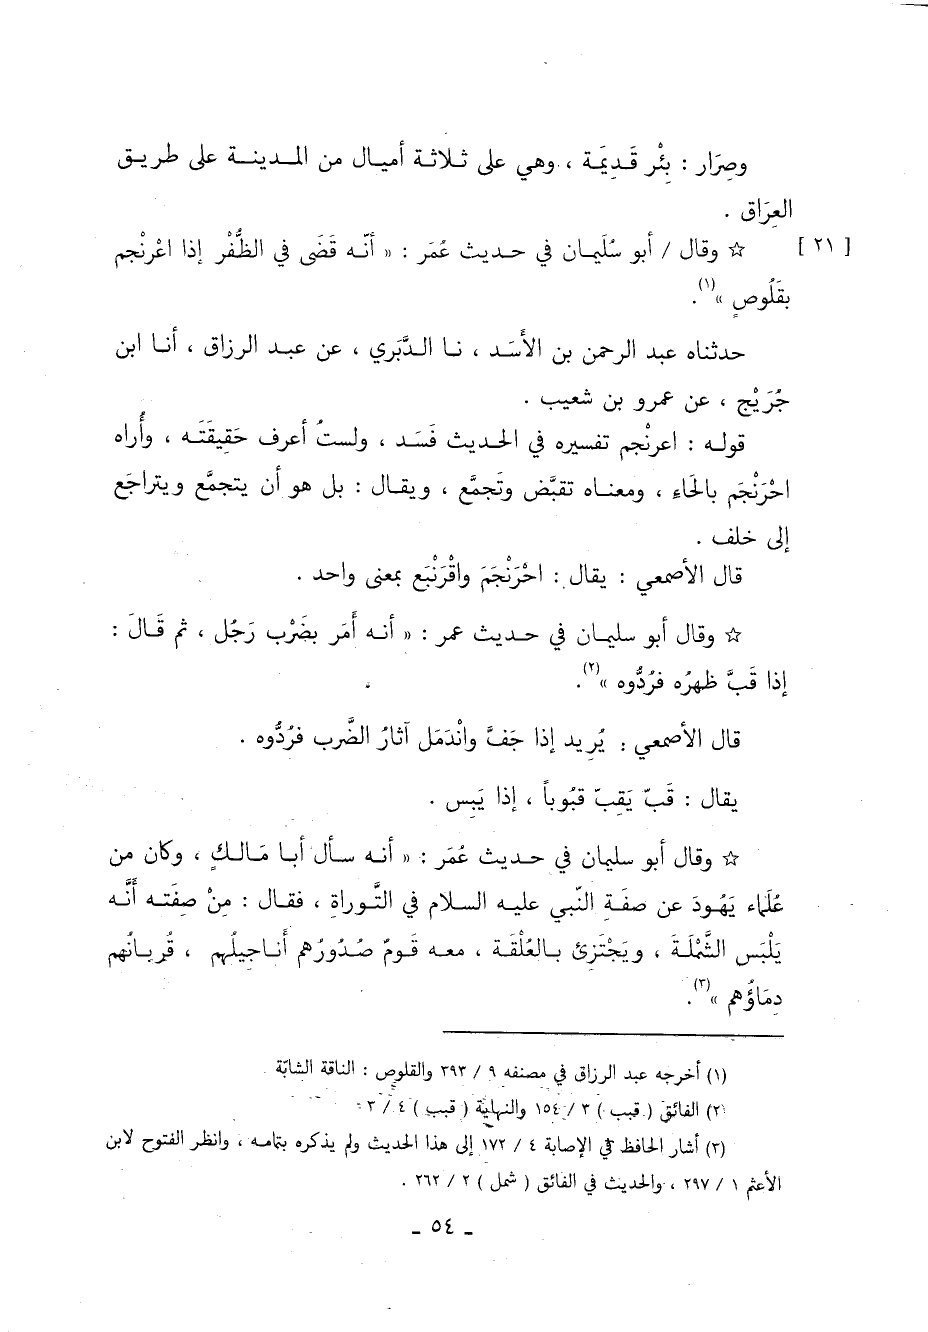 وصِرَار : بِئْر قَدِيمَة ، وهي على ثلاثة أميال من المدينة على طريق
العِرَاق .
[ ٢١ ] ☆ وقال / أبو سُلَيمان في حديث عُمَر : « أنّه قَضَى في الظُّفْر إذا اعْرنْجم
بِقَلُوصٍ »(١).
حدثناه عبد الرحمن بن الأَسَد ، نا الدَّبَري ، عن عبد الرزاق ، أنا ابن
جُرَيْج ، عن عمرو بن شعيب .
قوله : اعرنْجم تفسيره في الحديث فَسَد ، ولستُ أعرف حَقِيقَتَه ، وأُراه
احْرَنْجَم بالحَاء ، ومعناه تقبَّض وتَجمَّع ، ويقال : بل هو أن يتجمَّع ويتراجَع
إلى خلف .
قال الأصمعي : يقال : احْرَنْجَمَ واقْرَنْبَع بمعنى واحد .
☆ وقال أبو سليمان في حديث عمر : « أنه أَمَر بضَرْب رَجُل ، ثم قَالَ :
إذا قَبَّ ظهرُه فرُدُّوه »(٢).
قال الأصمعي : يُرِيد إذا جَفَّ وانْدَمَل آثارُ الضَّرب فرُدُّوه .
يقال : قَبّ يَقِبّ قبُوباً ، إذا يَبِس .
☆ وقال أبو سليمان في حديث عُمَر : « أنه سأل أبا مَالك ، وكان من
عُلَماء يَهُودَ عن صفَةِ النّبي عليه السلام في التَّوراةِ ، فقال : مِنْ صِفَته أَنَّه
يَلْبَس الشَّمْلَةَ ، ويَجْتزِئ بالعُلْقَة ، معه قَومٌ صُدُورُهم أَناجِيلُهم ، قُربانُهم
دِمَاؤُهم »(٣).
(١) أخرجه عبد الرزاق في مصنفه ٩ / ٣٩٣ والقلوص : الناقة الشابّة
(٢) الفائق ( قبب ) ٣ / ١٥٤ والنهاية ( قبب ) ٤ / ٣
(٣) أشار الحافظ في الإصابة ٤ / ١٧٢ إلى هذا الحديث ولم يذكره بتمامه ، وانظر الفتوح لابن
الأعثم ١ / ٢٩٧ ، والحديث في الفائق ( شمل ) ٢ / ٢٦٢ .
- ٥٤ -